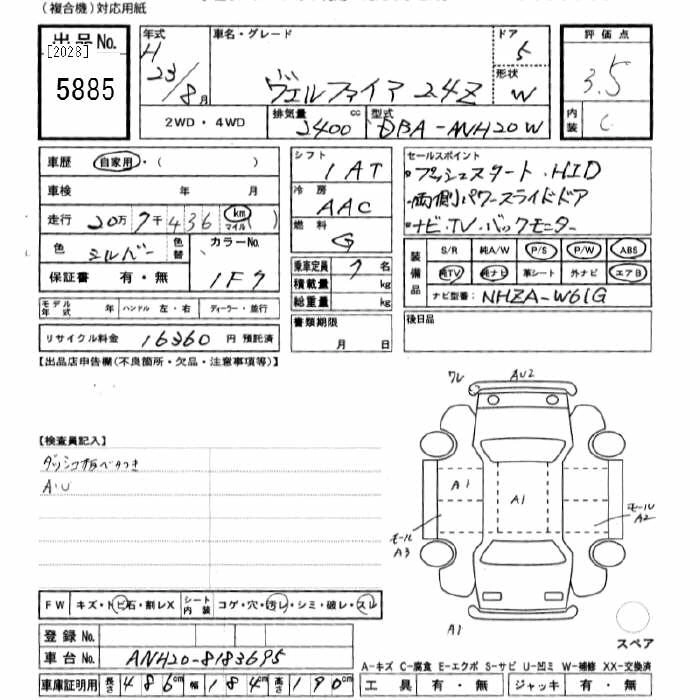 (複合機)対応用紙
出品No. 年式 車名・グレード ドア 評価点
[2028] H 5
5885 23/8月 ヴェルファイア 24Z 形状 W 3.5
2WD・4WD 排気量 2400 cc 型式 DBA-ANH20W 内装 C
車歴 自家用・( )
車検 年 月
走行 20万 7千 436 (km マイル)
色 シルバー 色替 カラーNo.
保証書 有・無 1F7
モデル年式 年 ハンドル 左・右 ディーラー・並行
リサイクル料金 16360 円 預託済
シフト 1AT
冷房 AAC
燃料 G
乗車定員 7 名
積載量 kg
総重量 kg
書類期限
月 日
セールスポイント
・プッシュスタート・HID
・両側パワースライドドア
・ナビ・TV・バックモニター
装備品 S/R 純A/W P/S P/W ABS
純TV 純ナビ 革シート 外ナビ エアB
ナビ型番: NHZA-W61G
後日品
【出品店申告欄(不良箇所・欠品・注意事項等)】
【検査員記入】
ダッシュ板ベタつき
A・U
ワレ AU2
A1 A1 モール A2
モール A3
A1
スペア
FW キズ・トビ石・割レX シート内装 コゲ・穴・汚レ・シミ・破レ・スレ
登録No.
車台No. ANH20-8183695
車庫証明用 長さ 486cm 幅 184cm 高さ 190cm
A-キズ C-腐食 E-エクボ S-サビ U-凹ミ W-補修 XX-交換済
工具 有・無 ジャッキ 有・無